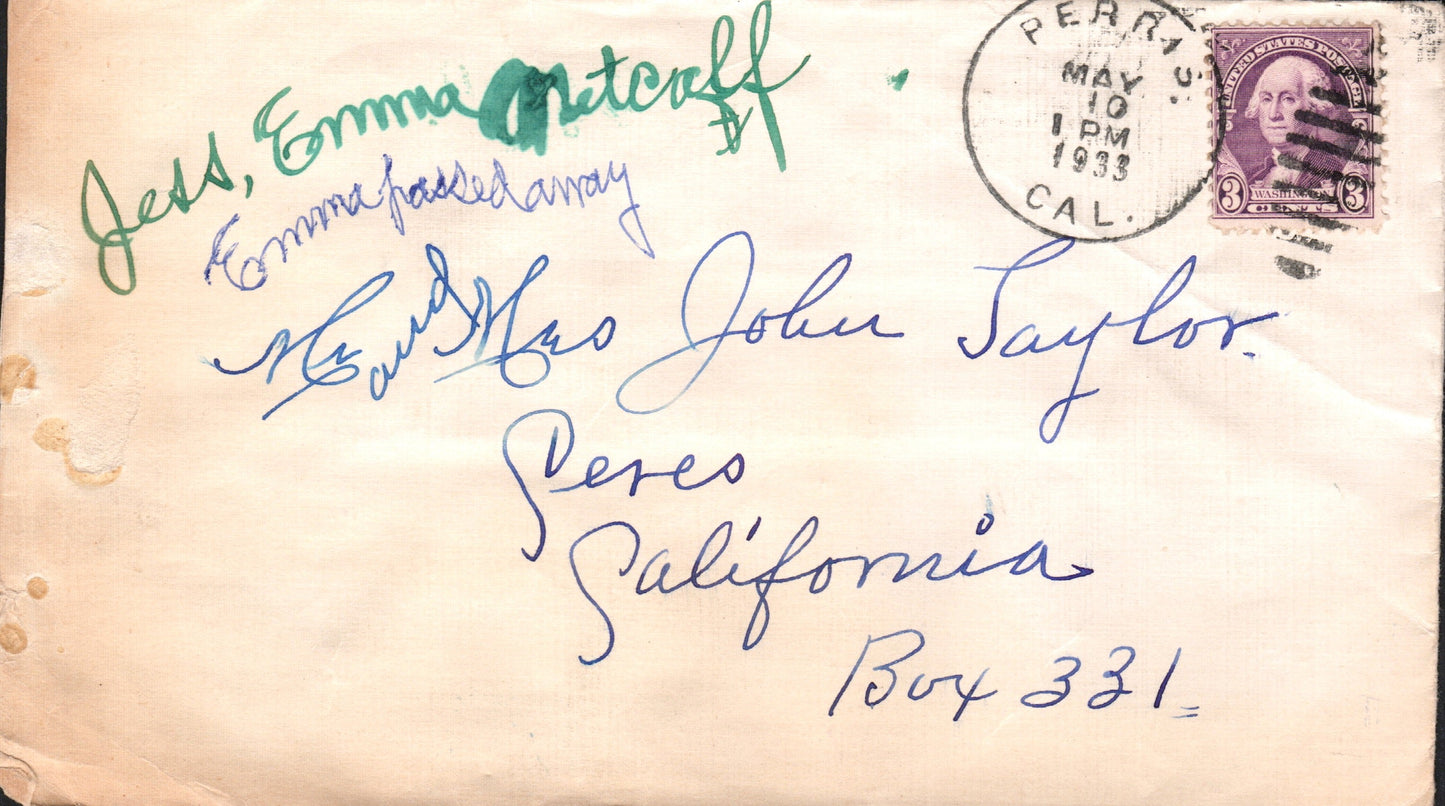 Jess, Emma Metcalf
Emma passed away
PERRIS.
MAY
10
1 PM
1933
CAL.
UNITED STATES POSTAGE
3 WASHINGTON 3
Mr and Mrs John Taylor.
Peres
California
Box 331